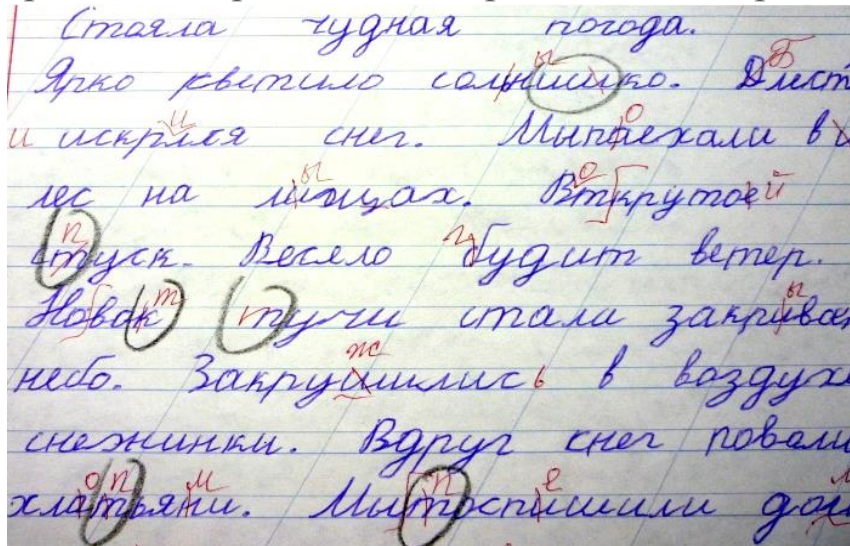 Стояла чудная погода.
Ярко кветило солнишико. Длест
и искриля снег. Мыпаехали в
лес на лижцах. Вткрутое й
стуск. Весело будит ветер.
Новак тучи стали закривал
небо. Закрушились в воздухе
снежинки. Вдруг снег повали
хлатьяни. Мытоспишили дом